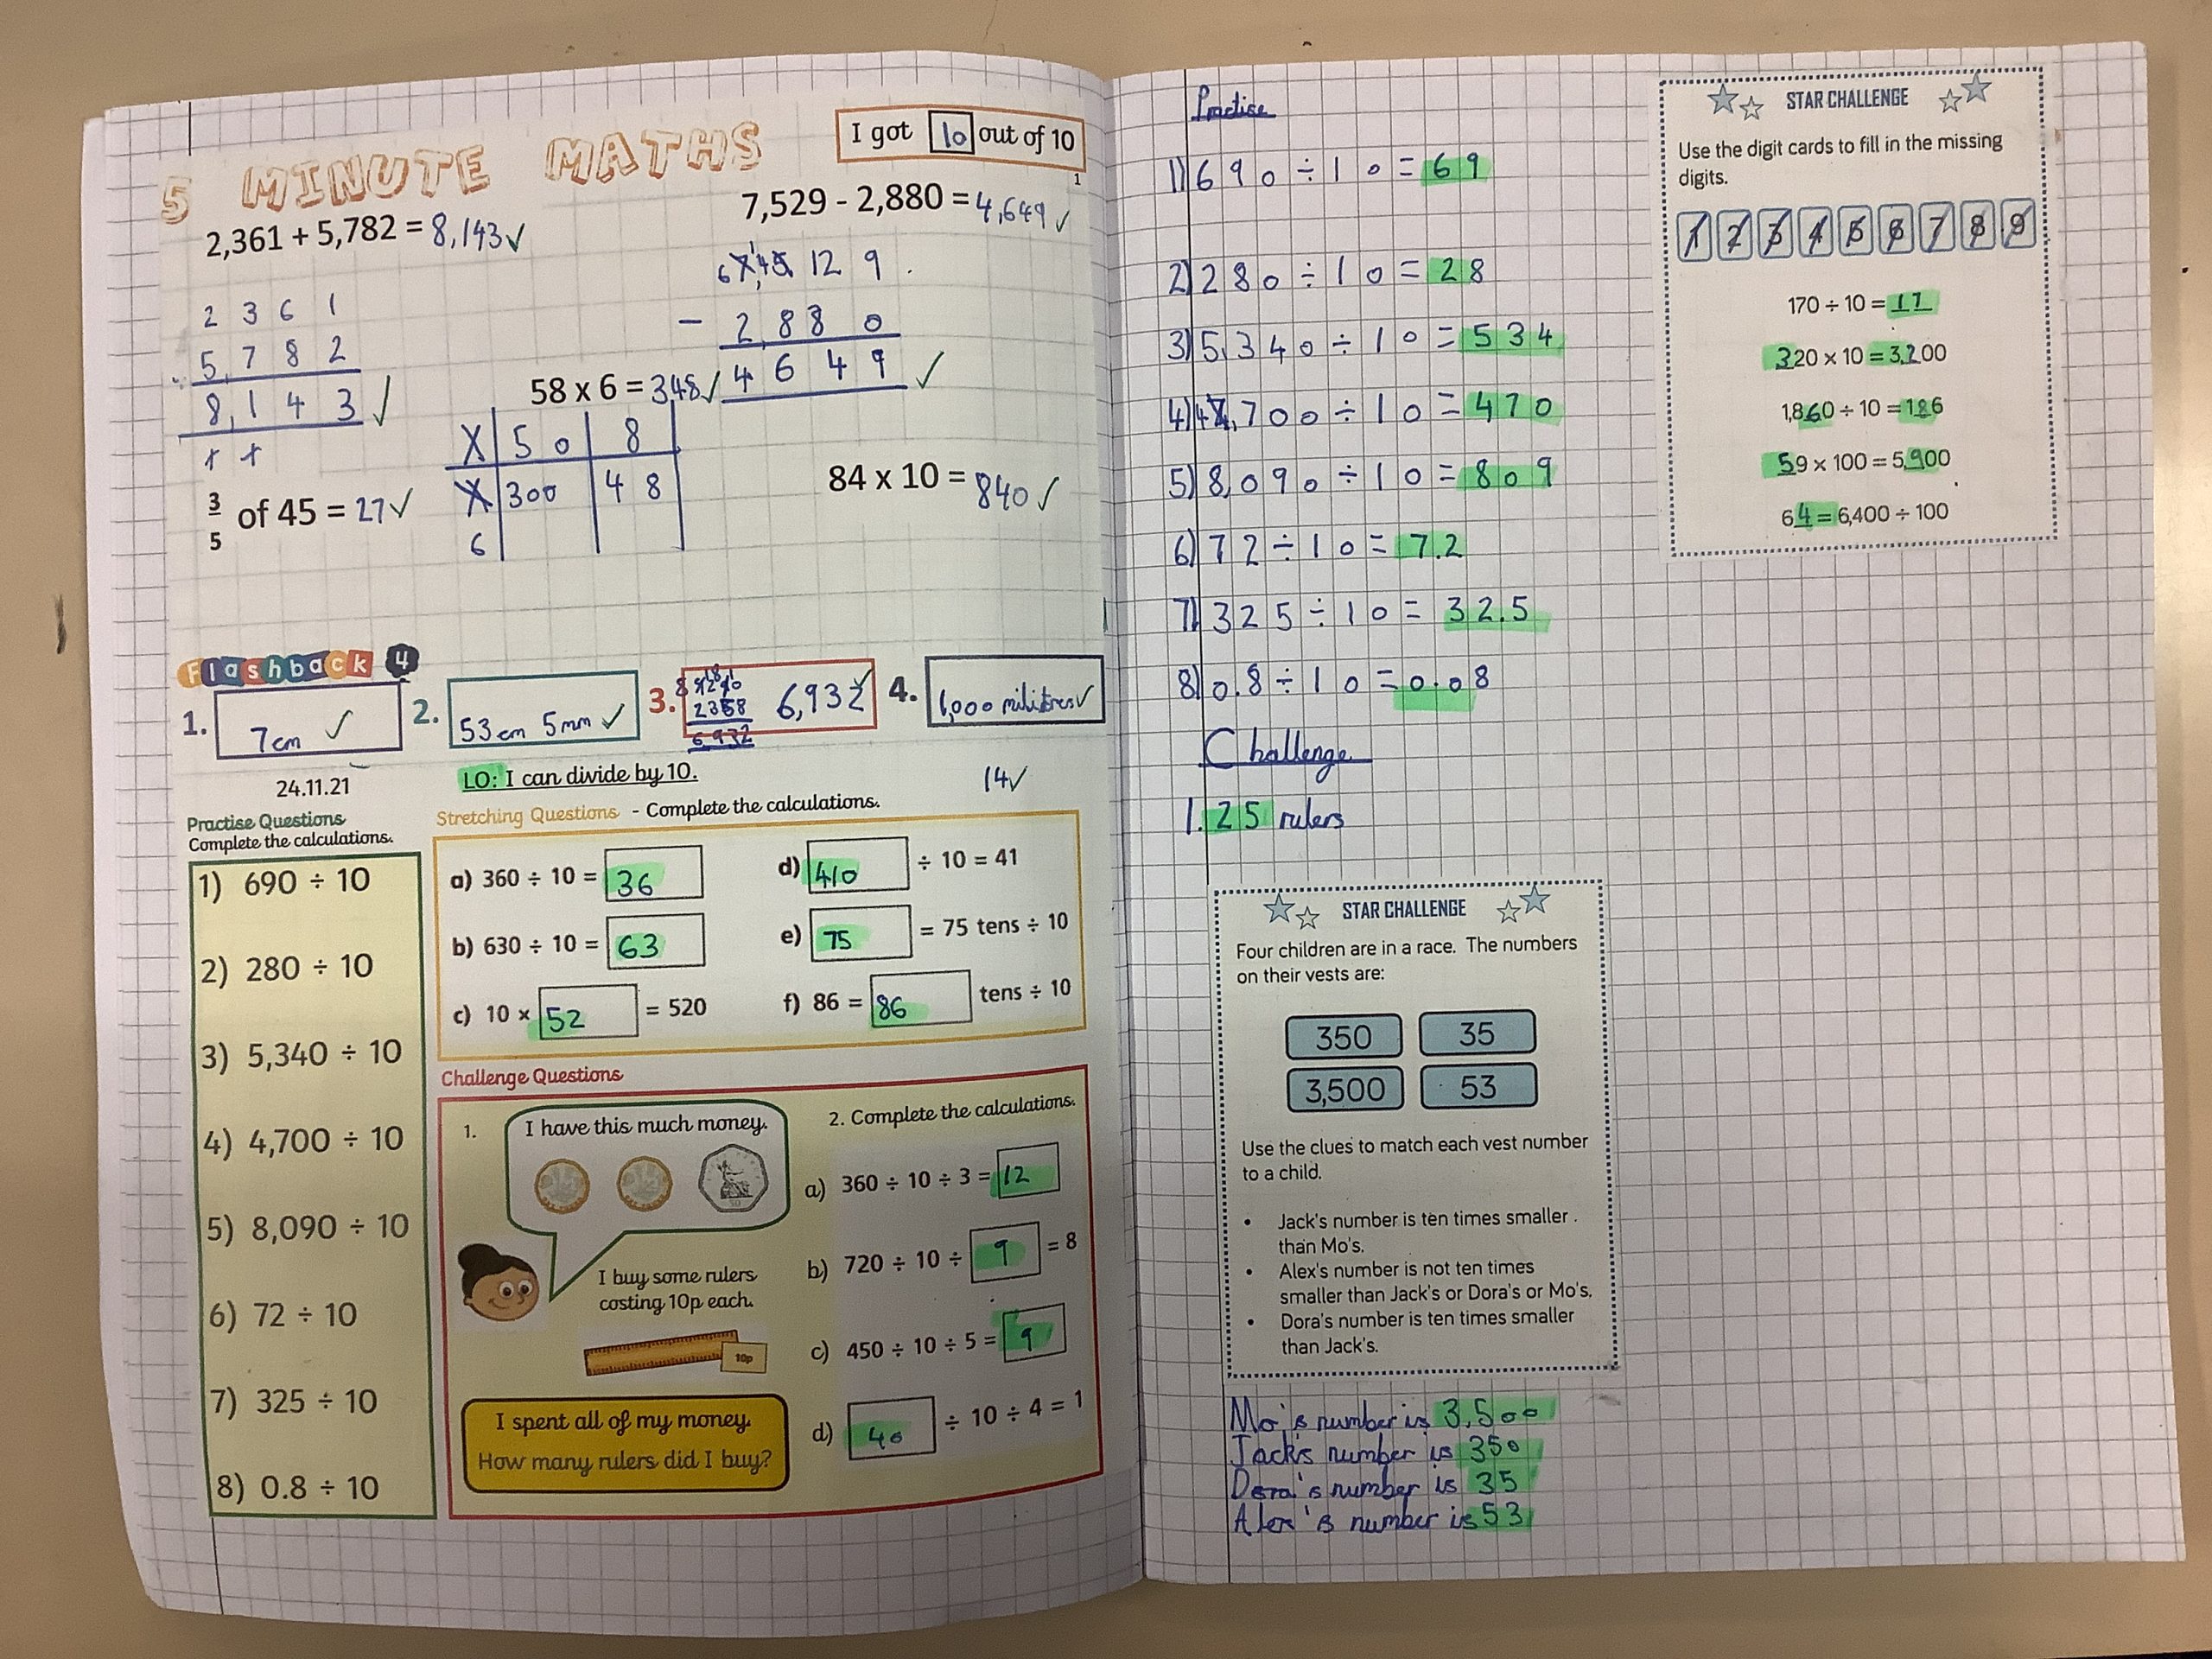 5 MINUTE MATHS
I got 10 out of 10
1
2,361 + 5,782 = 8,143 ✓
7,529 - 2,880 = 4,649 ✓
2 3 6 1
5,7 8 2
8,1 4 3 ✓
1 1
6 7,14 5 12 9
- 2,8 8 0
4 6 4 9 ✓
58 x 6 = 348 ✓
X 5 0 8
X 300 4 8
6
3/5 of 45 = 27 ✓
84 x 10 = 840 ✓
Flashback 4
1. 7cm ✓
2. 53cm 5mm ✓
3. 6,932 ✓
2358
6932
4. 1,000 mililitres ✓
24.11.21
LO: I can divide by 10.
14 ✓
Practise Questions
Complete the calculations.
1) 690 ÷ 10
2) 280 ÷ 10
3) 5,340 ÷ 10
4) 4,700 ÷ 10
5) 8,090 ÷ 10
6) 72 ÷ 10
7) 325 ÷ 10
8) 0.8 ÷ 10
Stretching Questions - Complete the calculations.
a) 360 ÷ 10 = 36
b) 630 ÷ 10 = 63
c) 10 × 52 = 520
d) 410 ÷ 10 = 41
e) 75 = 75 tens ÷ 10
f) 86 = 86 tens ÷ 10
Challenge Questions
1.
I have this much money.
I buy some rulers
costing 10p each.
10p
I spent all of my money.
How many rulers did I buy?
2. Complete the calculations.
a) 360 ÷ 10 ÷ 3 = 12
b) 720 ÷ 10 ÷ 9 = 8
c) 450 ÷ 10 ÷ 5 = 9
d) 40 ÷ 10 ÷ 4 = 1
Practise
1) 690 ÷ 10 = 69
2) 280 ÷ 10 = 28
3) 5,340 ÷ 10 = 534
4) 4,700 ÷ 10 = 470
5) 8,090 ÷ 10 = 809
6) 72 ÷ 10 = 7.2
7) 325 ÷ 10 = 32.5
8) 0.8 ÷ 10 = 0.08
Challenge
1. 25 rulers
STAR CHALLENGE
Four children are in a race. The numbers
on their vests are:
350 35
3,500 53
Use the clues to match each vest number
to a child.
• Jack's number is ten times smaller
than Mo's.
• Alex's number is not ten times
smaller than Jack's or Dora's or Mo's.
• Dora's number is ten times smaller
than Jack's.
Mo's number is 3,500
Jack's number is 350
Dora's number is 35
Alex's number is 53
STAR CHALLENGE
Use the digit cards to fill in the missing
digits.
1 2 3 4 5 6 7 8 9
170 ÷ 10 = 17
320 x 10 = 3,200
1,860 ÷ 10 = 186
59 x 100 = 5,900
64 = 6,400 ÷ 100